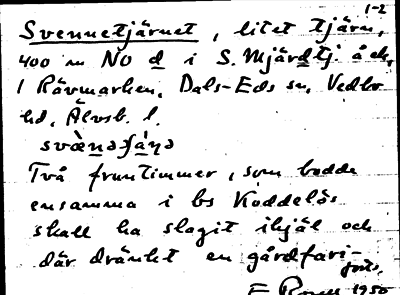 1-2
Svennetjärnet, litet tjärn,
400 m NO d i S. Mjärdtj. åch,
i Rävmarken, Dals-Eds sn, Vedbo
hd, Älvsb. l.
svæ̀nəʃánə
Två fruntimmer, som bodde
ensamma i bs Koddelös
skall ha slagit ihjäl och
där dränkt en gårdfari-
1950